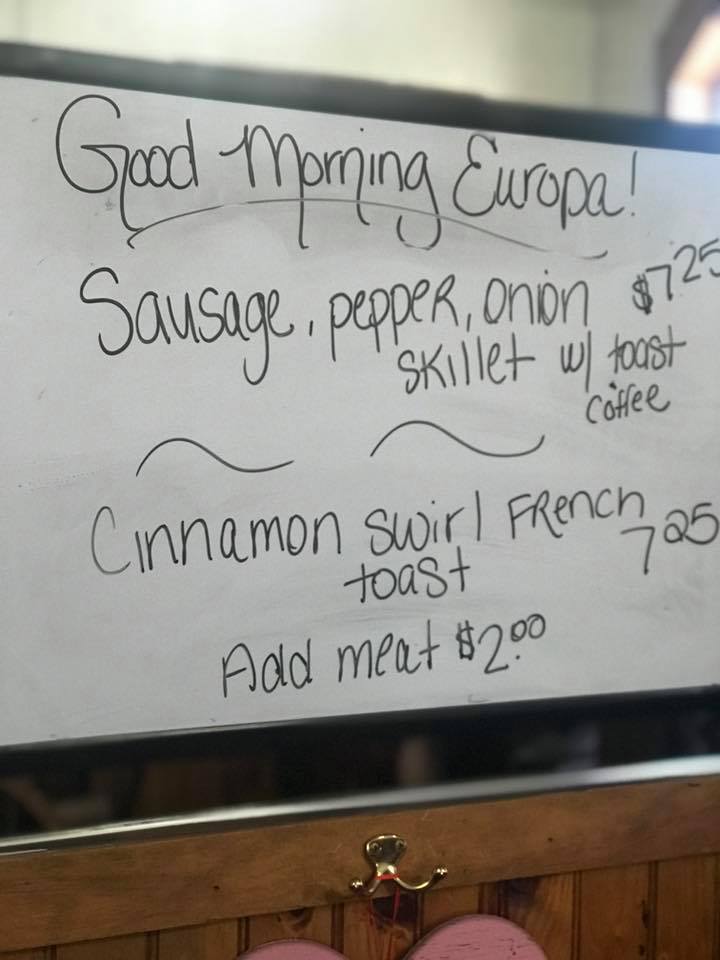 Good Morning Europa!
Sausage, pepper, onion $7.25
skillet w/ toast
coffee
Cinnamon swirl French
toast 7.25
Add meat $2.00